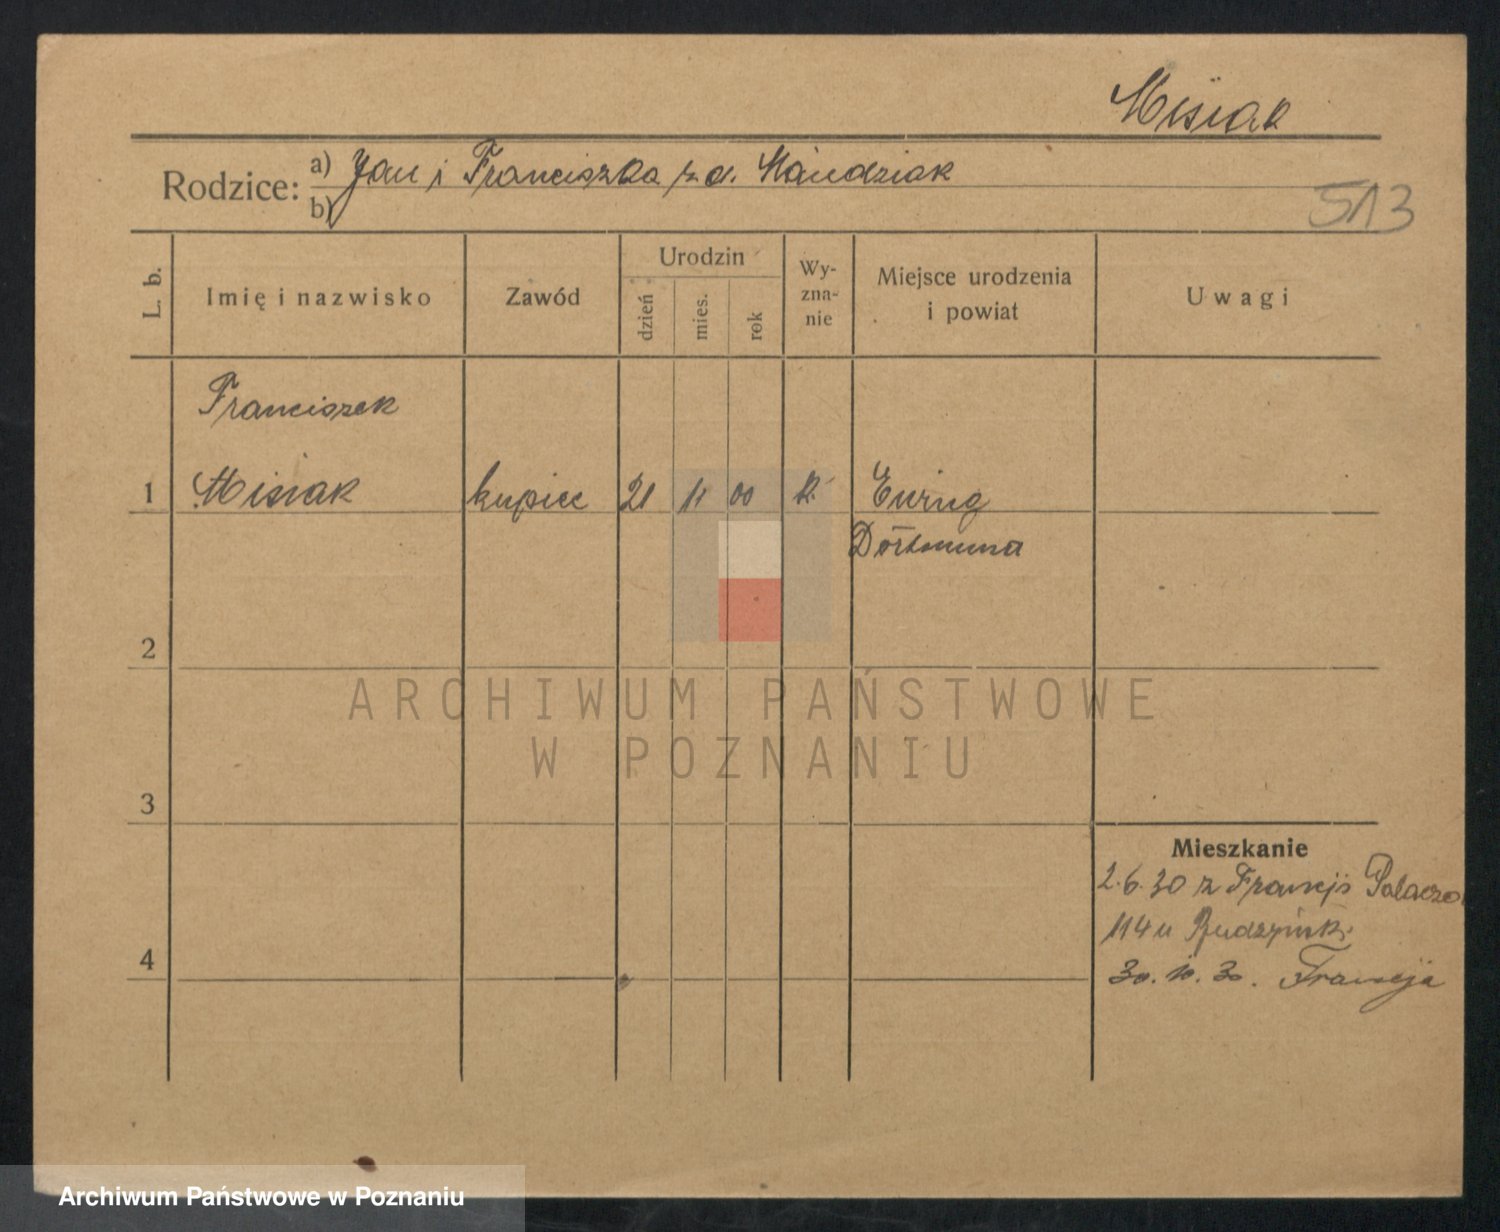 Misiak
Rodzice: a) Jan i Franciszka z d.
b)
513
L. b.
Imię i nazwisko
Zawód
Urodzin
dzień
mies.
rok
Wy-
zna-
nie
Miejsce urodzenia
i powiat
Uwagi
Franciszek
1 Misiak kupiec 21 11 00 k.
2
3
4
Mieszkanie
2.6.30 z Francji
114 u
30.10.30. Francja
ARCHIWUM PAŃSTWOWE
W POZNANIU
Archiwum Państwowe w Poznaniu